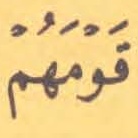 قَوْمَهُمْ